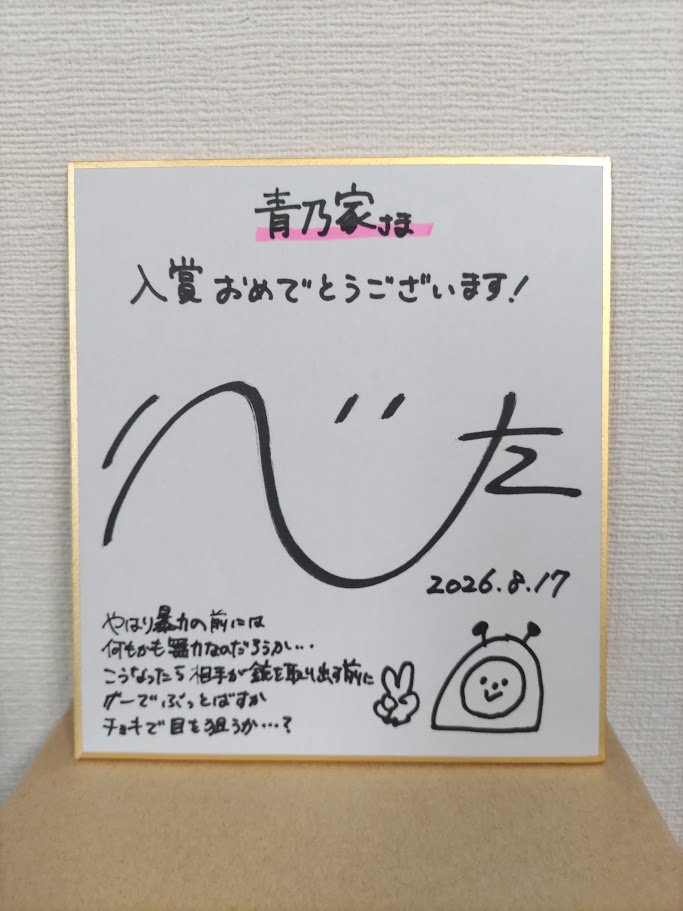 青乃家さま
入賞おめでとうございます!
2026.8.17
やはり暴力の前には
何もかも無力なのだろうか…
こうなったら相手が銃を取り出す前に
グーでぶっとばすか
チョキで目を狙うか…?